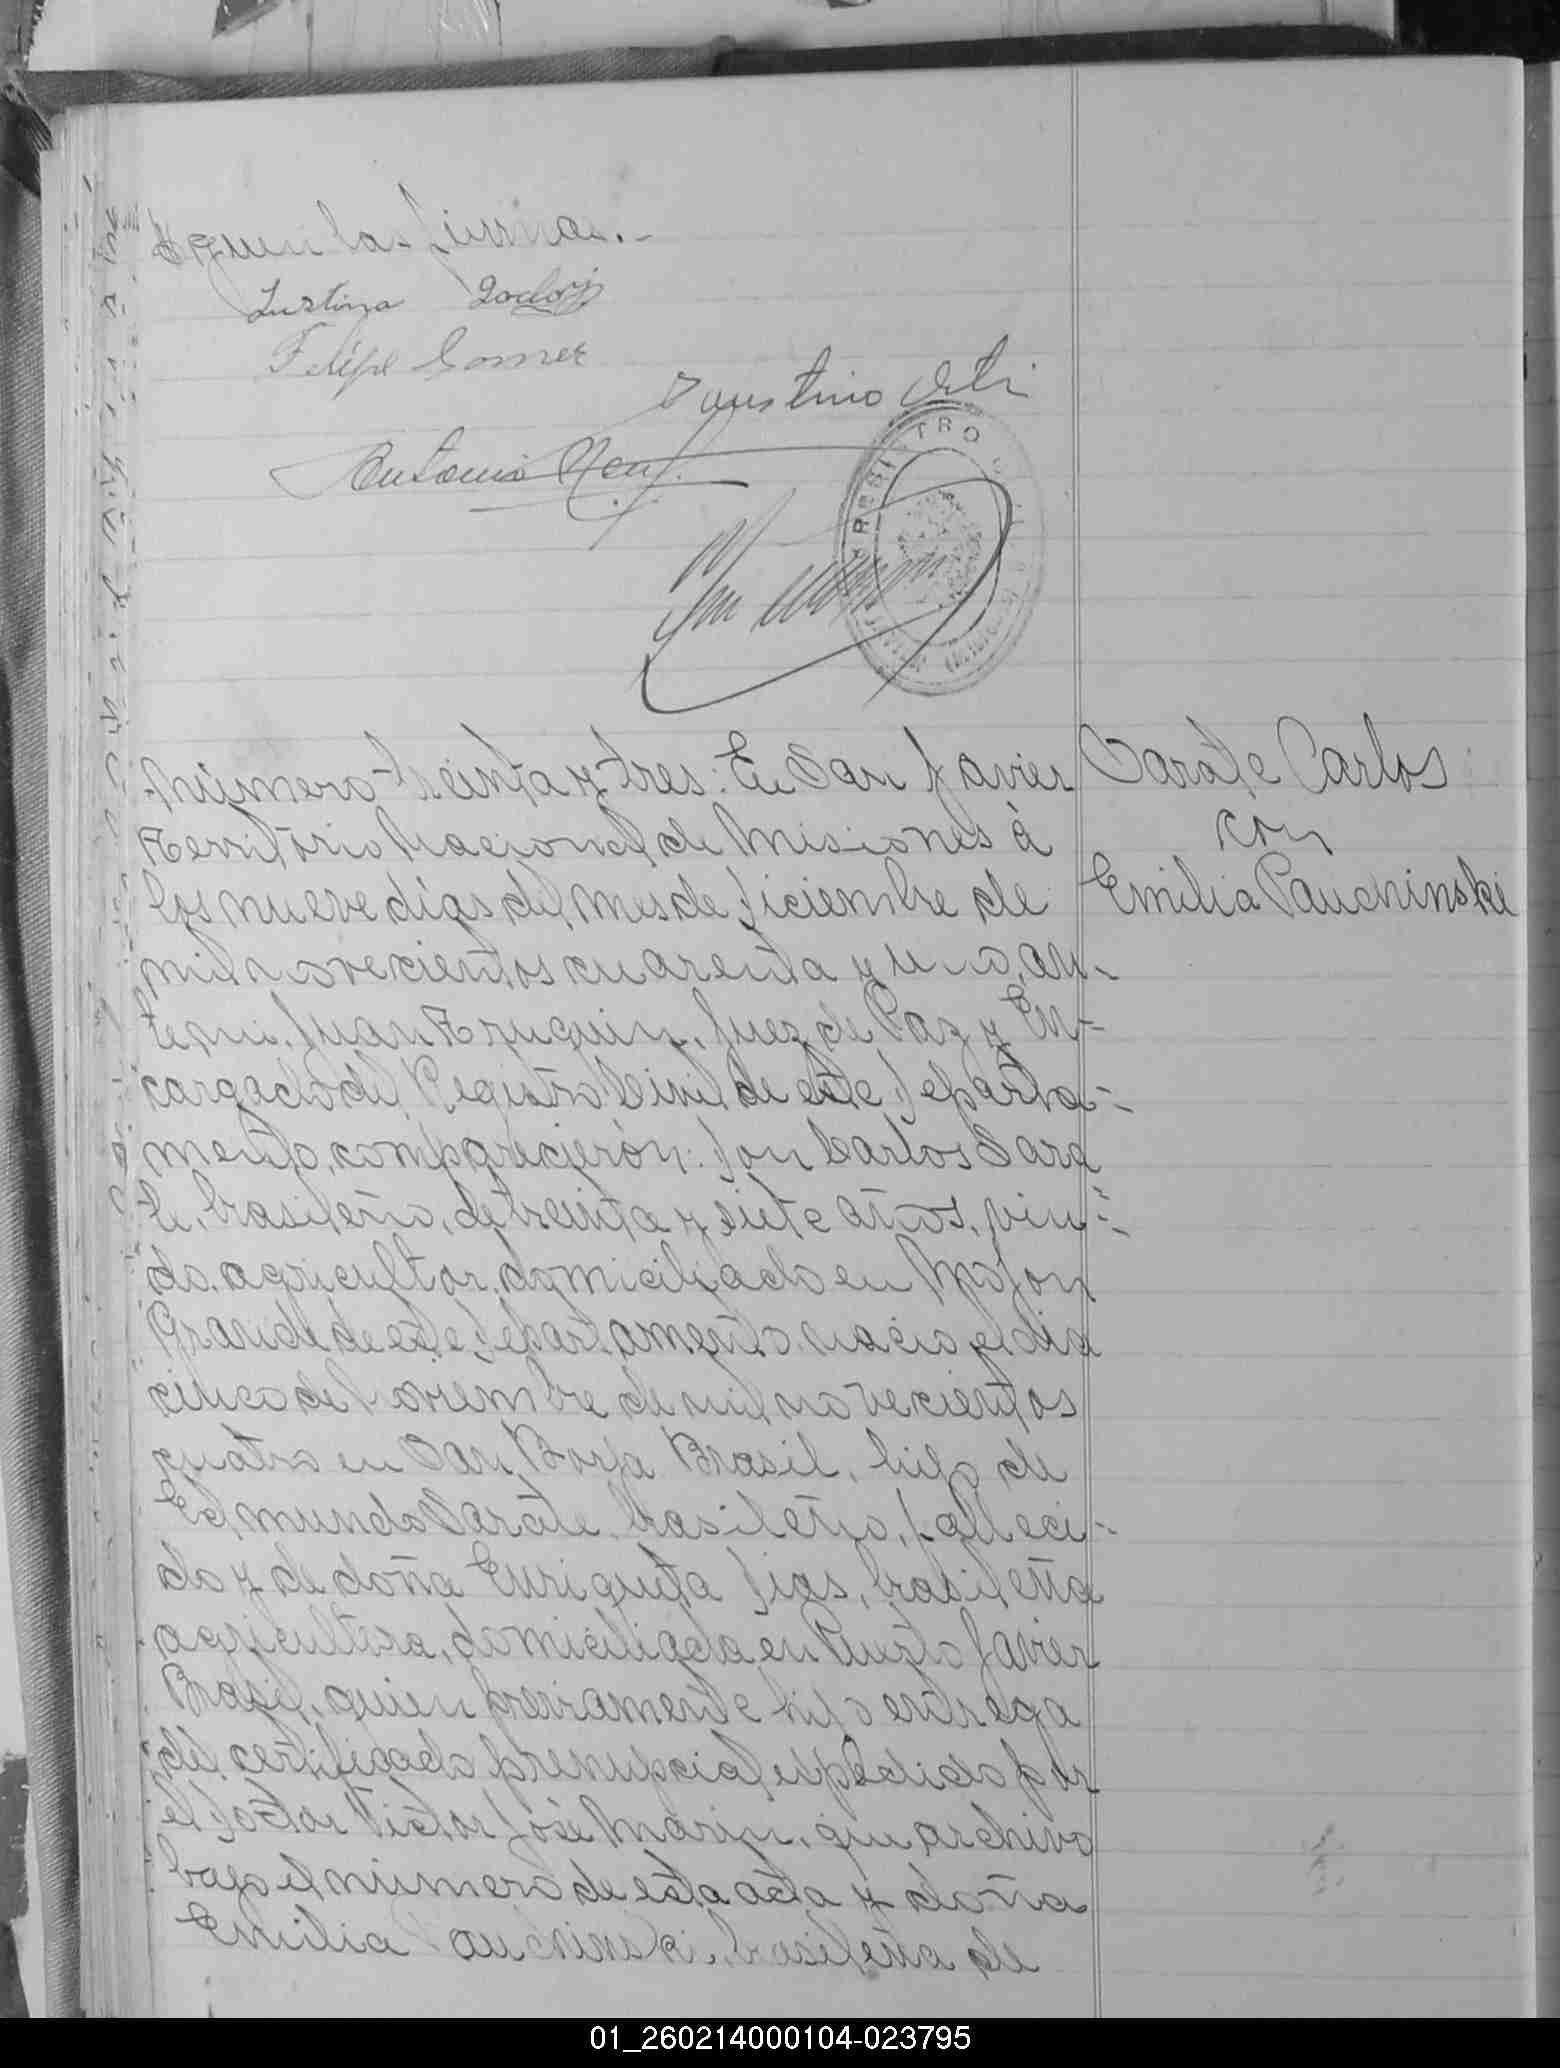 siguen las firmas.-
Justina Godoy
Felipe Gomez
Faustino
Antonio
REGISTRO
Número treinta y tres: En San Javier
Territorio Nacional de Misiones à
los nueve dias del mes de Diciembre de
mil novecientos cuarenta y uno, an-
te mi, Juan Truquin, Juez de Paz y En-
cargado del Registro Civil de este Departa-
mento, comparecierón: Don Carlos Sara
te, brasileño, de treinta y siete años, viu-
do, agricultor, domiciliado en Mojon
Grande de este Departamento, nacio el dia
cinco de Noviembre de mil novecientos
cuatro en San Borja Brasil, hijo de
Edmundo Sarate, brasileño, falleci-
do y de doña Enriqueta Dias, brasileña
agricultora, domiciliada en Puerto Javier
Brasil, quien previamente hizo entrega
del certificado prenupcial expedido por
el Doctor Victor José Marin, que archivo
bajo el número de esta acta y doña
Emilia Pauchinski, brasileña de
Sarate Carlos
con
Emilia Pauchinski
01_260214000104-023795